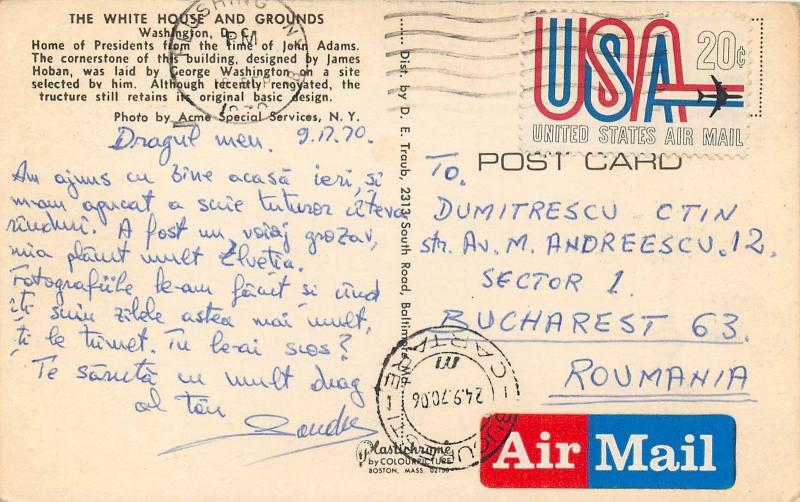 THE WHITE HOUSE AND GROUNDS
Washington, D. C.
Home of Presidents from the time of John Adams.
The cornerstone of this building, designed by James
Hoban, was laid by George Washington on a site
selected by him. Although recently renovated, the
tructure still retains its original basic design.
Photo by Acme Special Services, N. Y.
Dragul meu. 9.17.70.
Am ajuns cu bine acasă ieri, și
m-am apucat a scrie tuturor cîteva
rînduri. A fost un voiaj grozav,
mia plăcut mult Elveția.
Fotografiile le-am făcut și cînd
îți scriu zilele astea mai mult,
ți le trimet. Tu le-ai scos?
Te sărută cu mult drag
al tău
Dist. by D. E. Traub, 2313 South Road, Baltimore
Plastichrome
by COLOURPICTURE
BOSTON, MASS. 02130
WASHINGTON
PM
USA 20¢
UNITED STATES AIR MAIL
POST CARD
To.
DUMITRESCU CTIN
str. Av. M. ANDREESCU. 12.
SECTOR 1.
BUCHAREST 63.
ROUMANIA
BUCURESTI
CARTARE
24.9.70.06
Air Mail